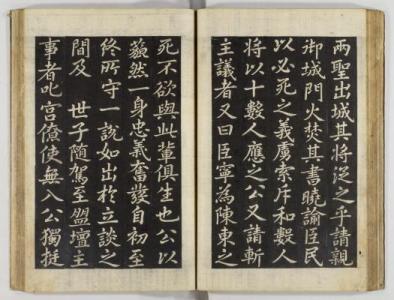 兩聖出城其將從之乎請親
御城門火焚其書曉諭臣民
以必死之義虜索斥和數人
將以十數人應之公又請斬
主議者又曰臣寧為陳東之
死不欲與此輩俱生也公以
藐然一身忠義奮發自初至
終所守一說如出於立談之
間及 世子隨駕至盟壇主
事者叱宮僚使無入公獨挺